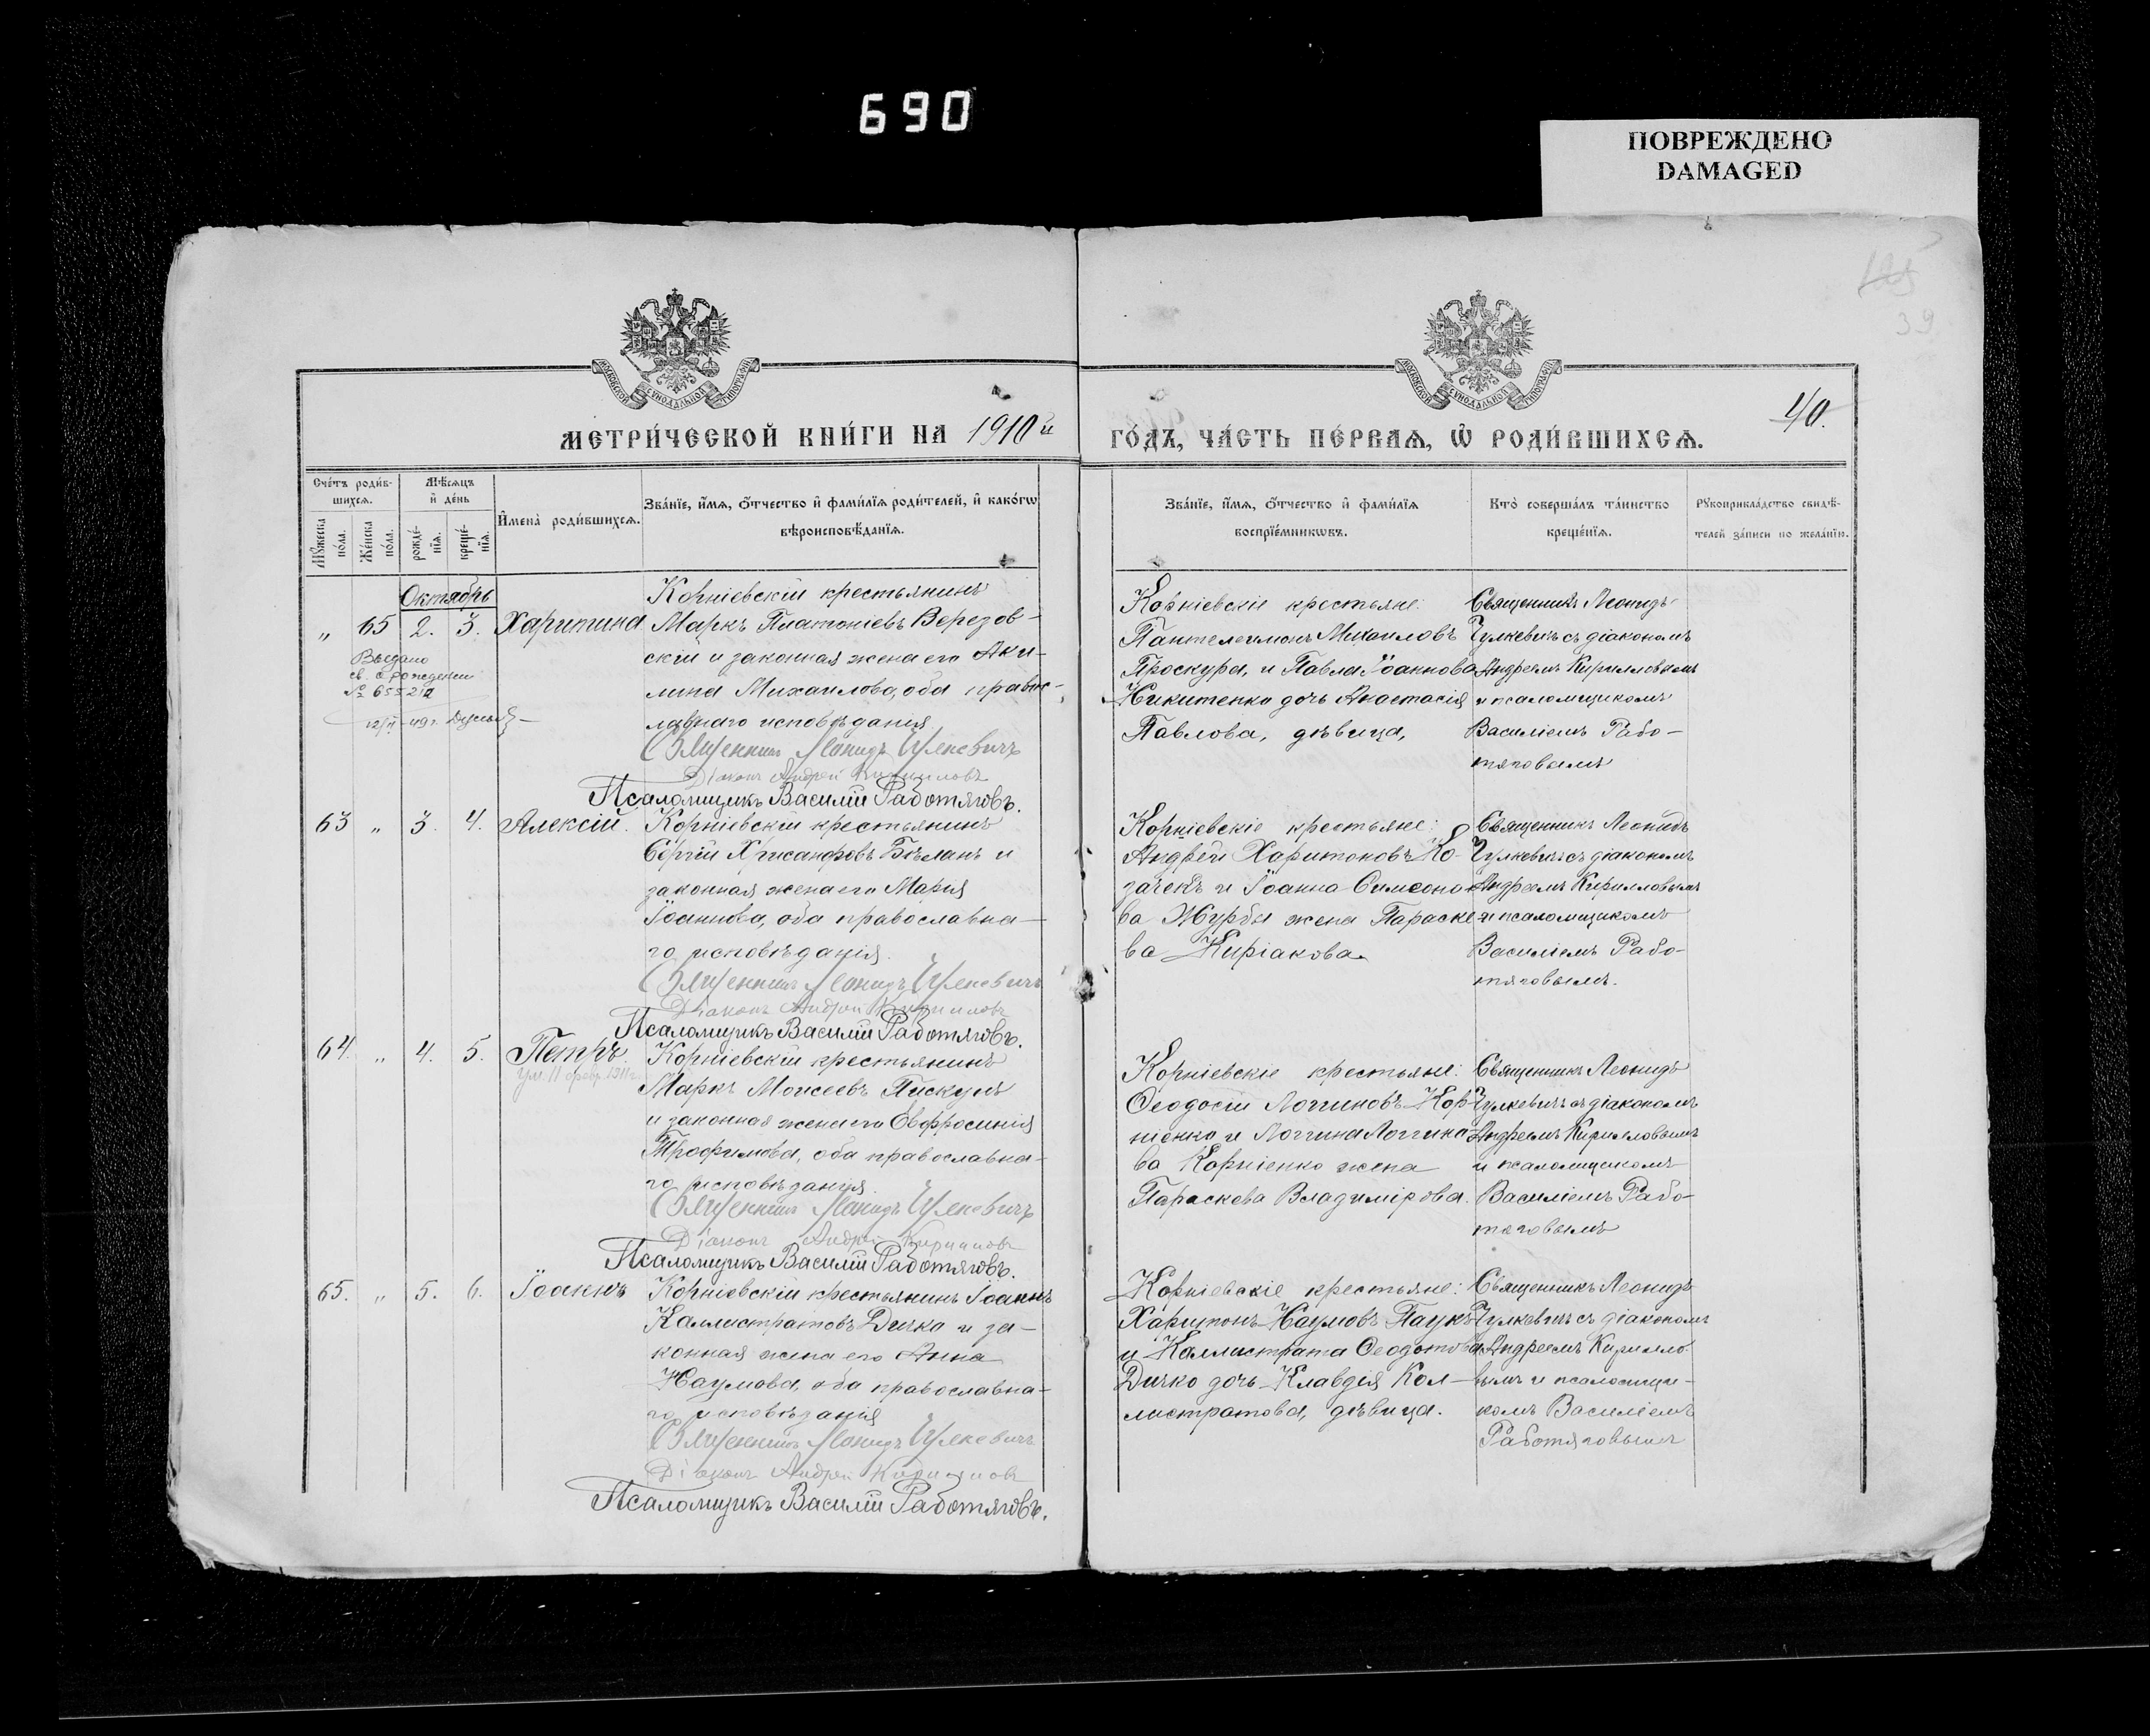 690
ПОВРЕЖДЕНО
DAMAGED
39
МОСКОВСКОЙ СѴНОДАЛЬНОЙ ТИПОГРАФІИ
МОСКОВСКОЙ СѴНОДАЛЬНОЙ ТИПОГРАФІИ
40.
МЕТРИ́ЧЕСКОЙ КНИ́ГИ НА 1910й
ГО́ДЪ, ЧА́СТЬ ПЕ́РВАѦ, Ѿ РОДИ́ВШИХСѦ.
Сче́тъ роди́в-
шихсѧ.
Мꙋ́жеска по́ла.
Же́нска по́ла.
Мѣ́сѧцъ
и҆ де́нь
рожде́-
нїѧ.
креще́-
нїѧ.
И҆мена̀ роди́вшихсѧ.
Зва́нїе, и҆́мѧ, ѻ҆́тчество и҆ фами́лїѧ роди́телей, и҆ како́гѡ
вѣроисповѣ́данїѧ.
Зва́нїе, и҆́мѧ, ѻ҆́тчество и҆ фами́лїѧ
воспрїе́мникѡвъ.
Кто̀ соверша́лъ та́инство
креще́нїѧ.
Рꙋкоприкла́дство свидѣ́-
телей за́писи по жела́нїю.
Октябрь
„ 65 2. 3. Харитина
Выдано
св. о рождении
№ 655212
Корніевскій крестьянинъ
Маркъ Платоніевъ Верезов-
скій и законная жена его Аки-
лина Михаилова, оба правос-
лавнаго исповѣданія
Священникъ Леонидъ Чулкевичъ
Діаконъ Андрей Кирилловъ
Псаломщикъ Василій Работяговъ.
Корніевскіе крестьяне:
Пантелеимонъ Михаиловъ
Проскура, и Павла Іоаннова
Никитенко дочь Анастасія
Павлова, дѣвица,
Священникъ Леонидъ
Чулкевичъ съ діакономъ
Андреемъ Кирилловымъ
и псаломщикомъ
Василіемъ Рабо-
тяговымъ
63 „ 3. 4. Алексій.
Корніевскій крестьянинъ
Сергій Хрисанфовъ Бѣланъ и
законная жена его Марія
Іоаннова, оба православна-
го исповѣданія.
Священникъ Леонидъ Чулкевичъ
Діаконъ Андрей Кирилловъ
Псаломщикъ Василій Работяговъ.
Корніевскіе крестьяне:
Андрей Харитоновъ Ко-
зачекъ и Іоанна Симеоно-
ва Журбы жена Параске-
ва Киріакова.
Священникъ Леонидъ
Чулкевичъ съ діакономъ
Андреемъ Кирилловымъ
и псаломщикомъ
Василіемъ Рабо-
тяговымъ.
64. „ 4. 5. Петръ.
Ум. 11 февр. 1911 г.
Корніевскій крестьянинъ
Маркъ Моисеевъ Пискунъ
и законная жена его Евфросинія
Трофимова, оба православна-
го исповѣданія
Священникъ Леонидъ Чулкевичъ
Діаконъ Андрей Кирилловъ
Псаломщикъ Василій Работяговъ.
Корніевскіе крестьяне:
Ѳеодосій Логгиновъ Кор-
ніенко и Логгина Логгино-
ва Корніенко жена
Параскева Владимірова.
Священникъ Леонидъ
Чулкевичъ съ діакономъ
Андреемъ Кирилловымъ
и псаломщикомъ
Василіемъ Рабо-
тяговымъ
65. „ 5. 6. Іоаннъ
Корніевскій крестьянинъ Іоаннъ
Каллистратовъ Дичко и за-
конная жена его Анна
Наумова, оба православна-
го исповѣданія
Священникъ Леонидъ Чулкевичъ
Діаконъ Андрей Кирилловъ
Псаломщикъ Василій Работяговъ.
Корніевскіе крестьяне:
Харитонъ Наумовъ Паукъ
и Каллистрата Ѳеодотова
Дичко дочь Клавдія Кал-
листратова, дѣвица.
Священникъ Леонидъ
Чулкевичъ съ діакономъ
Андреемъ Кирилло-
вымъ и псаломщи-
комъ Василіемъ
Работяговымъ